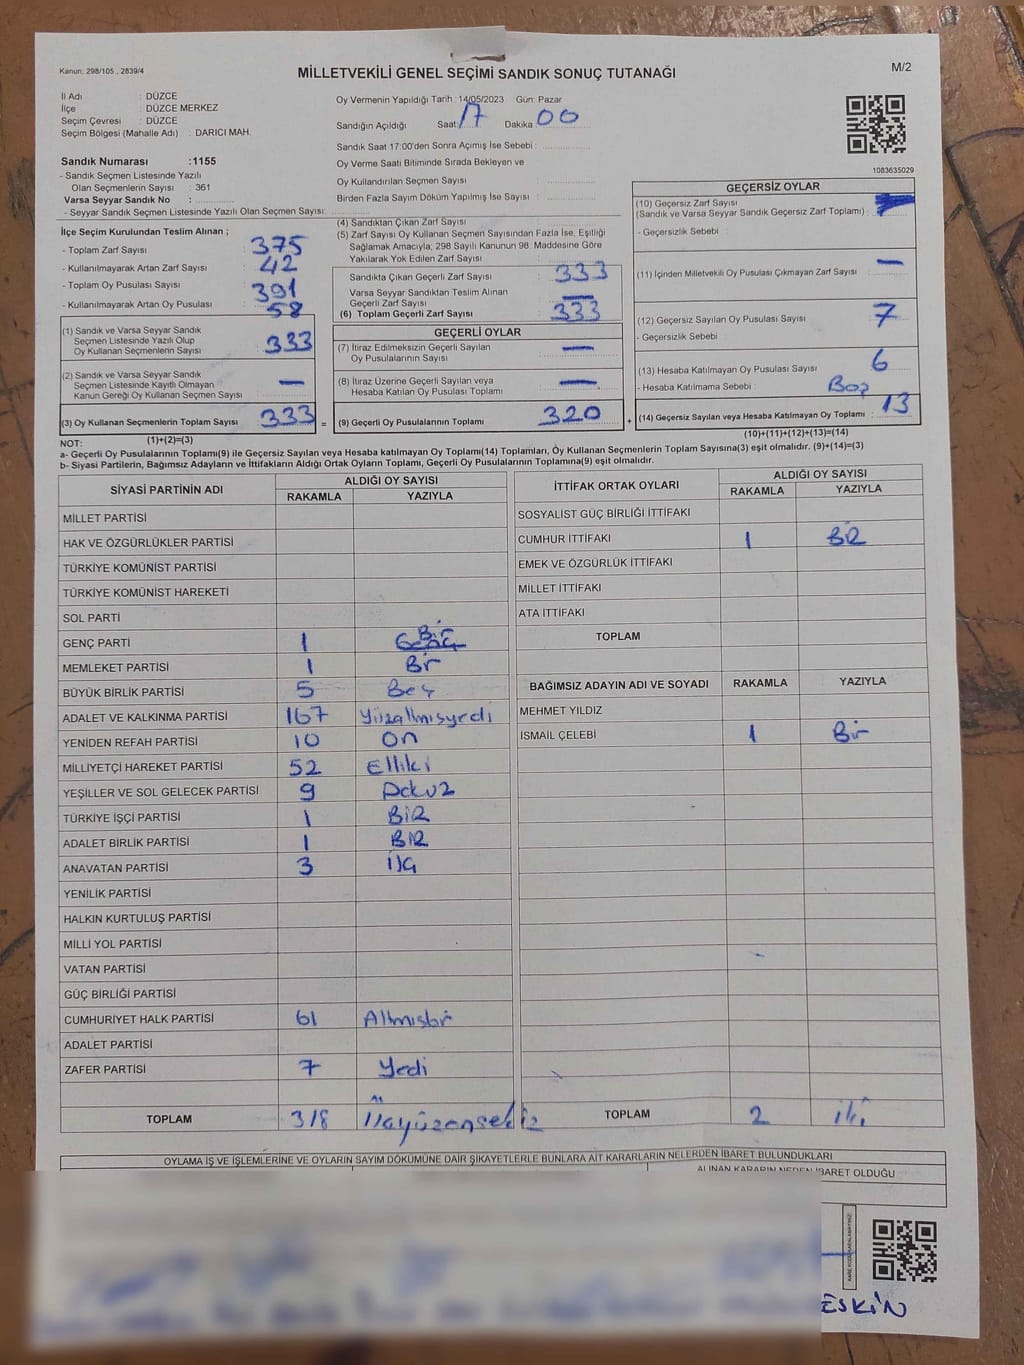 Kanun: 298/105 , 2839/4
MİLLETVEKİLİ GENEL SEÇİMİ SANDIK SONUÇ TUTANAĞI
M/2
İl Adı : DÜZCE
İlçe : DÜZCE MERKEZ
Seçim Çevresi : DÜZCE
Seçim Bölgesi (Mahalle Adı) : DARICI MAH.
Sandık Numarası :1155
- Sandık Seçmen Listesinde Yazılı
Olan Seçmenlerin Sayısı : 361
Varsa Seyyar Sandık No :
- Seyyar Sandık Seçmen Listesinde Yazılı Olan Seçmen Sayısı:
Oy Vermenin Yapıldığı Tarih :14/05/2023 Gün: Pazar
Sandığın Açıldığı Saat: 17 Dakika 00
Sandık Saat 17:00'den Sonra Açımış İse Sebebi :
Oy Verme Saati Bitiminde Sırada Bekleyen ve
Oy Kullandırılan Seçmen Sayısı :
Birden Fazla Sayım Döküm Yapılmış İse Sayısı :
1083635029
İlçe Seçim Kurulundan Teslim Alınan ;
- Toplam Zarf Sayısı : 375
- Kullanılmayarak Artan Zarf Sayısı : 42
- Toplam Oy Pusulası Sayısı : 391
- Kullanılmayarak Artan Oy Pusulası : 58
(1) Sandık ve Varsa Seyyar Sandık
Seçmen Listesinde Yazılı Olup
Oy Kullanan Seçmenlerin Sayısı : 333
(2) Sandık ve Varsa Seyyar Sandık
Seçmen Listesinde Kayıtlı Olmayan
Kanun Gereği Oy Kullanan Seçmen Sayısı : —
(3) Oy Kullanan Seçmenlerin Toplam Sayısı : 333 =
(1)+(2)=(3)
(4) Sandıktan Çıkan Zarf Sayısı :
(5) Zarf Sayısı Oy Kullanan Seçmen Sayısından Fazla İse, Eşitliği
Sağlamak Amacıyla; 298 Sayılı Kanunun 98. Maddesine Göre
Yakılarak Yok Edilen Zarf Sayısı :
Sandıkta Çıkan Geçerli Zarf Sayısı : 333
Varsa Seyyar Sandıktan Teslim Alınan
Geçerli Zarf Sayısı : —
(6) Toplam Geçerli Zarf Sayısı : 333
GEÇERLİ OYLAR
(7) İtiraz Edilmeksizin Geçerli Sayılan
Oy Pusulalarının Sayısı : —
(8) İtiraz Üzerine Geçerli Sayılan veya
Hesaba Katılan Oy Pusulası Toplamı : —
(9) Geçerli Oy Pusulalarının Toplamı : 320 +
GEÇERSİZ OYLAR
(10) Geçersiz Zarf Sayısı
(Sandık ve Varsa Seyyar Sandık Geçersiz Zarf Toplamı) :
- Geçersizlik Sebebi :
(11) İçinden Milletvekili Oy Pusulası Çıkmayan Zarf Sayısı : —
(12) Geçersiz Sayılan Oy Pusulası Sayısı : 7
- Geçersizlik Sebebi :
(13) Hesaba Katılmayan Oy Pusulası Sayısı : 6
- Hesaba Katılmama Sebebi : Boş
(14) Geçersiz Sayılan veya Hesaba Katılmayan Oy Toplamı : 13
(10)+(11)+(12)+(13)=(14)
NOT:
a- Geçerli Oy Pusulalarının Toplamı(9) ile Geçersiz Sayılan veya Hesaba katılmayan Oy Toplamı(14) Toplamları, Oy Kullanan Seçmenlerin Toplam Sayısına(3) eşit olmalıdır. (9)+(14)=(3)
b- Siyasi Partilerin, Bağımsız Adayların ve İttifakların Aldığı Ortak Oyların Toplamı, Geçerli Oy Pusulalarının Toplamına(9) eşit olmalıdır.
SİYASİ PARTİNİN ADI ALDIĞI OY SAYISI
RAKAMLA YAZIYLA
MİLLET PARTİSİ
HAK VE ÖZGÜRLÜKLER PARTİSİ
TÜRKİYE KOMÜNİST PARTİSİ
TÜRKİYE KOMÜNİST HAREKETİ
SOL PARTİ
GENÇ PARTİ 1 Bir
MEMLEKET PARTİSİ 1 Bir
BÜYÜK BİRLİK PARTİSİ 5 Beş
ADALET VE KALKINMA PARTİSİ 167 Yüzaltmışyedi
YENİDEN REFAH PARTİSİ 10 On
MİLLİYETÇİ HAREKET PARTİSİ 52 Elliki
YEŞİLLER VE SOL GELECEK PARTİSİ 9 Dokuz
TÜRKİYE İŞÇİ PARTİSİ 1 BİR
ADALET BİRLİK PARTİSİ 1 BİR
ANAVATAN PARTİSİ 3 Üç
YENİLİK PARTİSİ
HALKIN KURTULUŞ PARTİSİ
MİLLİ YOL PARTİSİ
VATAN PARTİSİ
GÜÇ BİRLİĞİ PARTİSİ
CUMHURİYET HALK PARTİSİ 61 Altmışbir
ADALET PARTİSİ
ZAFER PARTİSİ 7 Yedi
TOPLAM 318 Üçyüzonsekiz
İTTİFAK ORTAK OYLARI ALDIĞI OY SAYISI
RAKAMLA YAZIYLA
SOSYALİST GÜÇ BİRLİĞİ İTTİFAKI
CUMHUR İTTİFAKI 1 BİR
EMEK VE ÖZGÜRLÜK İTTİFAKI
MİLLET İTTİFAKI
ATA İTTİFAKI
TOPLAM
BAĞIMSIZ ADAYIN ADI VE SOYADI RAKAMLA YAZIYLA
MEHMET YILDIZ
İSMAİL ÇELEBİ 1 Bir
TOPLAM 2 İki
OYLAMA İŞ VE İŞLEMLERİNE VE OYLARIN SAYIM DÖKÜMÜNE DAİR ŞİKAYETLERLE BUNLARA AİT KARARLARIN NELERDEN İBARET BULUNDUKLARI
ALINAN KARARIN NEDEN İBARET OLDUĞU
ESKİN